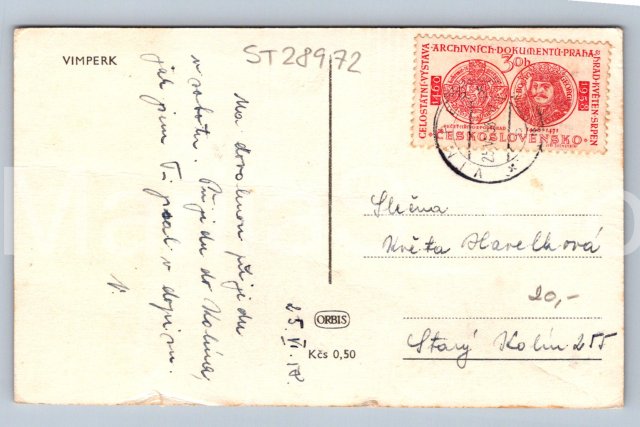 VIMPERK
ST28972
Na dovolenou přijedu
v sobotu. Přijedu do Kolína,
jak jsem Ti psal v dopisu.
V.
25. VI. 58.
ORBIS
Kčs 0,50
CELOSTÁTNÍ VÝSTAVA
ARCHIVNÍCH DOKUMENTŮ PRAHA
HRAD KVĚTEN SRPEN
30h
1958
ČESKOSLOVENSKO
Slečna
Květa Havelková
20,-
Starý Kolín 255